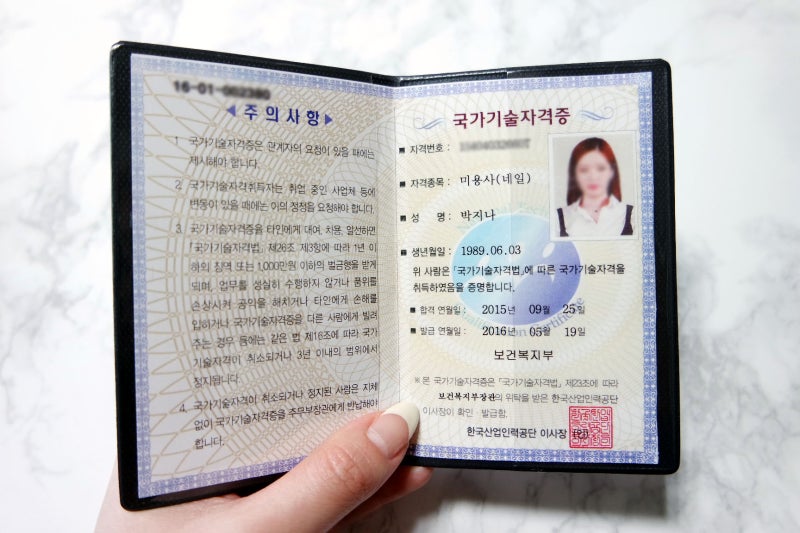 16-01-002380
◀ 주의사항 ▶
1. 국가기술자격증은 관계자의 요청이 있을 때에는
제시해야 합니다.
2. 국가기술자격취득자는 취업 중인 사업체 등에
변동이 있을 때에는 이의 정정을 요청해야 합니다.
3. 국가기술자격증을 타인에게 대여, 차용, 알선하면
「국가기술자격법」 제26조 제3항에 따라 1년 이
하의 징역 또는 1,000만원 이하의 벌금형을 받게
되며, 업무를 성실히 수행하지 않거나 품위를
손상시켜 공익을 해치거나 타인에게 손해를
입히거나 국가기술자격증을 다른 사람에게 빌려
주는 경우 등에는 같은 법 제16조에 따라 국가
기술자격이 취소되거나 3년 이내의 범위에서
정지됩니다.
4. 국가기술자격이 취소되거나 정지된 사람은 지체
없이 국가기술자격증을 주무부장관에게 반납해야
합니다.
국가기술자격증
■ 자격번호 :
■ 자격종목 : 미용사(네일)
■ 성 명 : 박지나
■ 생년월일 : 1989.06.03
위 사람은 「국가기술자격법」에 따른 국가기술자격을
취득하였음을 증명합니다.
■ 합격 연월일 : 2015년 09월 25일
■ 발급 연월일 : 2016년 05월 19일
보건복지부
※본 국가기술자격증은 「국가기술자격법」 제23조에 따라
보건복지부장관의 위탁을 받은 한국산업인력공단
이사장이 확인·발급함.
한국산업인력공단 이사장 (인)